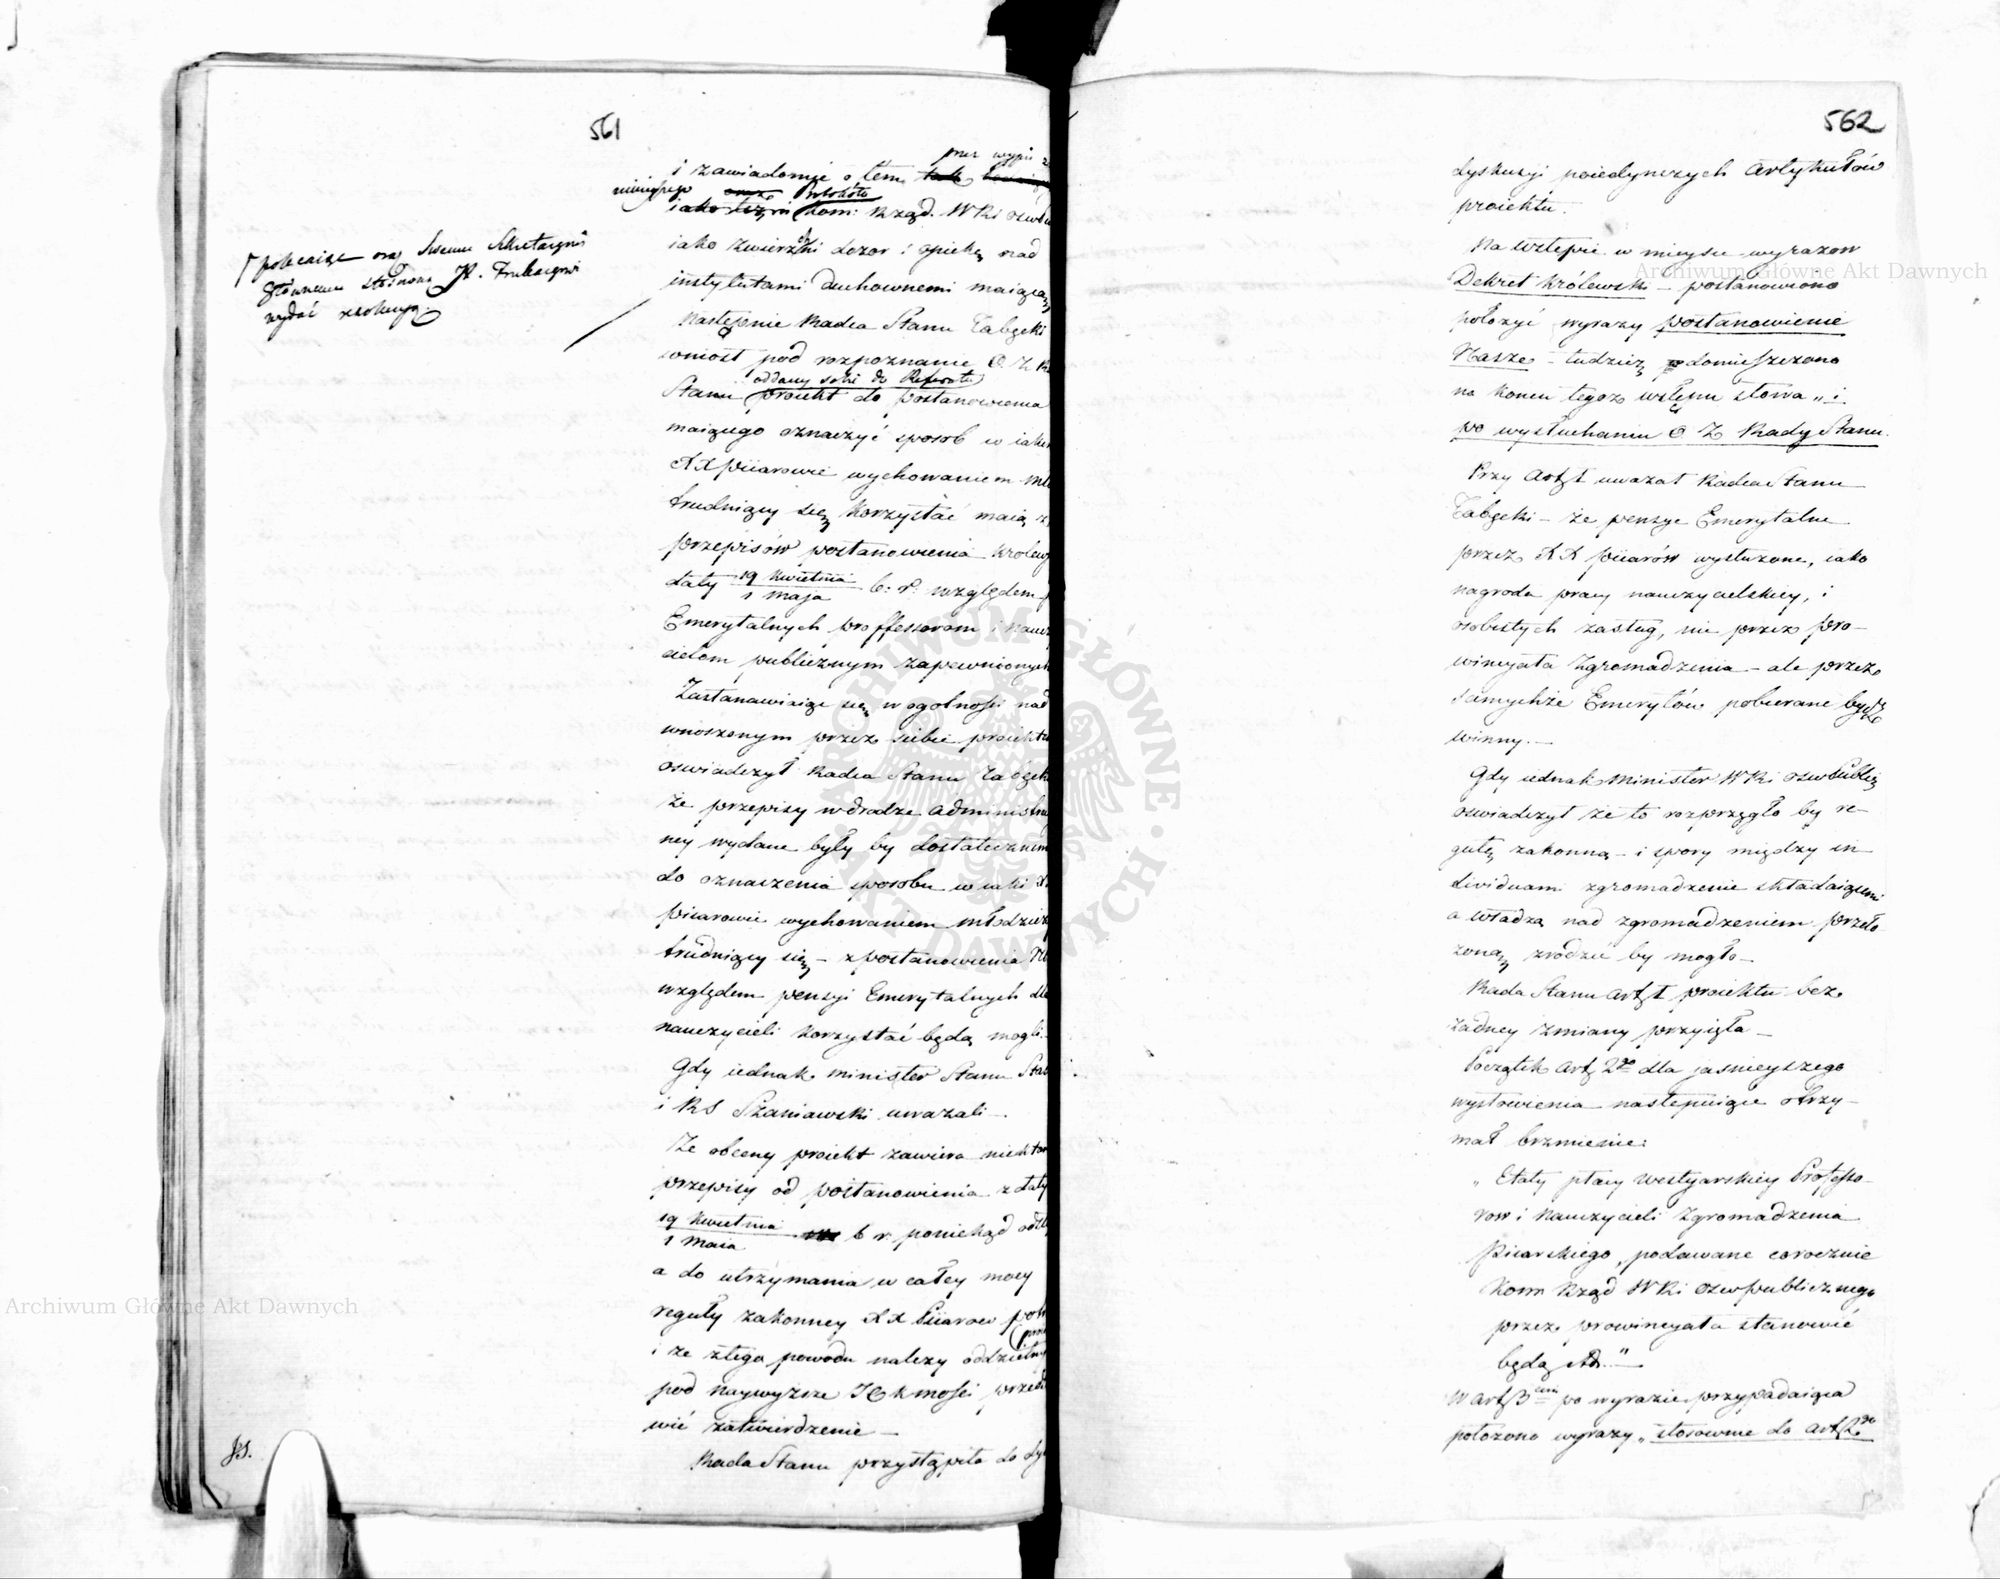 561
przez wypis z
i zawiadomić o tem
niniejszego Protokółu
kom: Rząd. W Ri oświe
iako zwierzchni dozor i opiekę nad
instytutami duchownemi maiącą
polecaiąc oraz Swemu Sekretarzowi
Głównemu stosowną JX. Truk
wydać rezolucyą
Następnie Radca Stanu Tabęcki
wniosł pod rozpoznanie O. Z. R.
oddany sobie do Referatu
Stanu proiekt do postanowienia
maiącego oznaczyć sposob w iaki
XX piiarowie wychowaniem mło
trudniący się, korzystać maią z
przepisów postanowienia Krolews
daty 19 Kwietnia b. r. względem p
1 Maja
Emerytalnych proffessorom i nauczy
cielom publicznym zapewnionych
Zastanawiaiąc się, w ogolności nad
wnoszonym przez siebie proiektem
oswiadczył Radca Stanu Tabęck
że przepisy w drodze administra
ney wydane były by dostateczném
do oznaczenia sposobu w iaki X.
piiarowie wychowaniem młodzieży
trudniący się, – z postanowienia
względem pensyi Emerytalnych dla
nauczycieli korzystać będą mogli. –
Gdy iednak Minister Stanu
i RS Szaniawski uważali –
Że obecny proiekt zawiera niektore
przepisy od postanowienia z daty
19 Kwietnia b r. poniekąd
1 Maia
a do utrzymania w całey mocy
reguły zakonney XX Piiarow
i że z tego powodu należy oddzielny
pod naywyższe JCKMości przedst
wić zatwierdzenie –
Rada Stanu przystąpiła do dy
562
dyskusyi poiedynczych Artykułów
proiektu.
Na wstępie w mieysce wyrazow
Dekret Królewski – postanowiono
położyć wyrazy postanowienie
Nasze – tudzież, domieszczono
na końcu tegoż wstępu słowa „ i
po wysłuchaniu O Z Rady Stanu.
Przy Art. 1 uważał Radca Stanu
Tabęcki – że pensye Emerytalne
przez XX piiarów wysłużone, iako
nagroda pracy nauczycielskiey, i
osobistych zasług, nie przez pro-
wincyała Zgromadzenia – ale przez
samychże Emerytów pobierane być
winny. –
Gdy iednak Minister W Ri oświe Public
oswiadczył że to rozprzęgło by re-
gułę zakonną – i spory między in
dividuami zgromadzenie składaiącemi
a władzą nad zgromadzeniem przeło
żoną, zrodzić by mogło –
Rada Stanu art. 1 proiektu bez
żadney zmiany przyięła –
Początek Art. 2go dla jaśnieyszego
wysłowienia następuiące otrzy-
mał brzmienie:
„ Etaty płacy westyarskiey Professo-
row i Nauczycieli Zgromadzenia
Piiarskiego, podawane corocznie
Kom Rząd W Ri Oświe publicznego
przez prowincyała stanowić
będą etc." –
W art. 3cim po wyrazie przypadaiąca
położono wyrazy „ stosownie do art. 2go